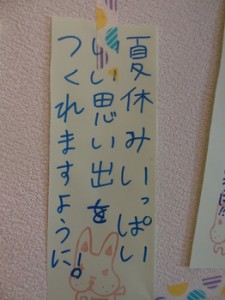 夏休みいっぱい
いい思い出を
つくれますように!